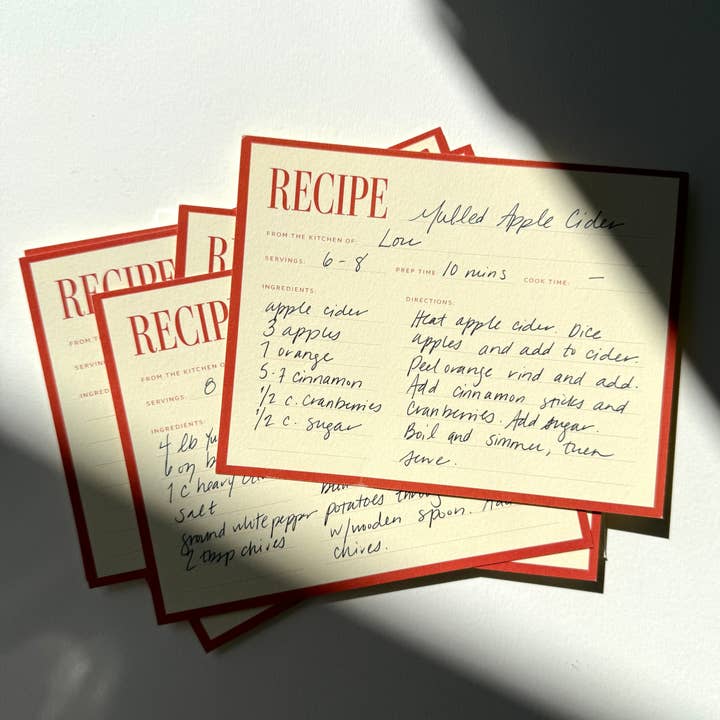 RECIPE Mulled Apple Cider
FROM THE KITCHEN OF: Lou
SERVINGS: 6-8 PREP TIME 10 mins COOK TIME: —
INGREDIENTS:
apple cider
3 apples
1 orange
5-7 cinnamon
1/2 c. cranberries
1/2 c. sugar
DIRECTIONS:
Heat apple cider. Dice
apples and add to cider.
Peel orange rind and add.
Add cinnamon sticks and
cranberries. Add sugar.
Boil and simmer, then
serve.
R
RECIPE
FROM T
SERVIN
INGRED
RECIP
FROM THE KITCHEN O
SERVINGS: 8
INGREDIENTS:
4 lb Yu
6 oz b
1 c heavy
salt
ground white pepper
2 tbsp chives
potatoes
w/wooden spoon. Add
chives.